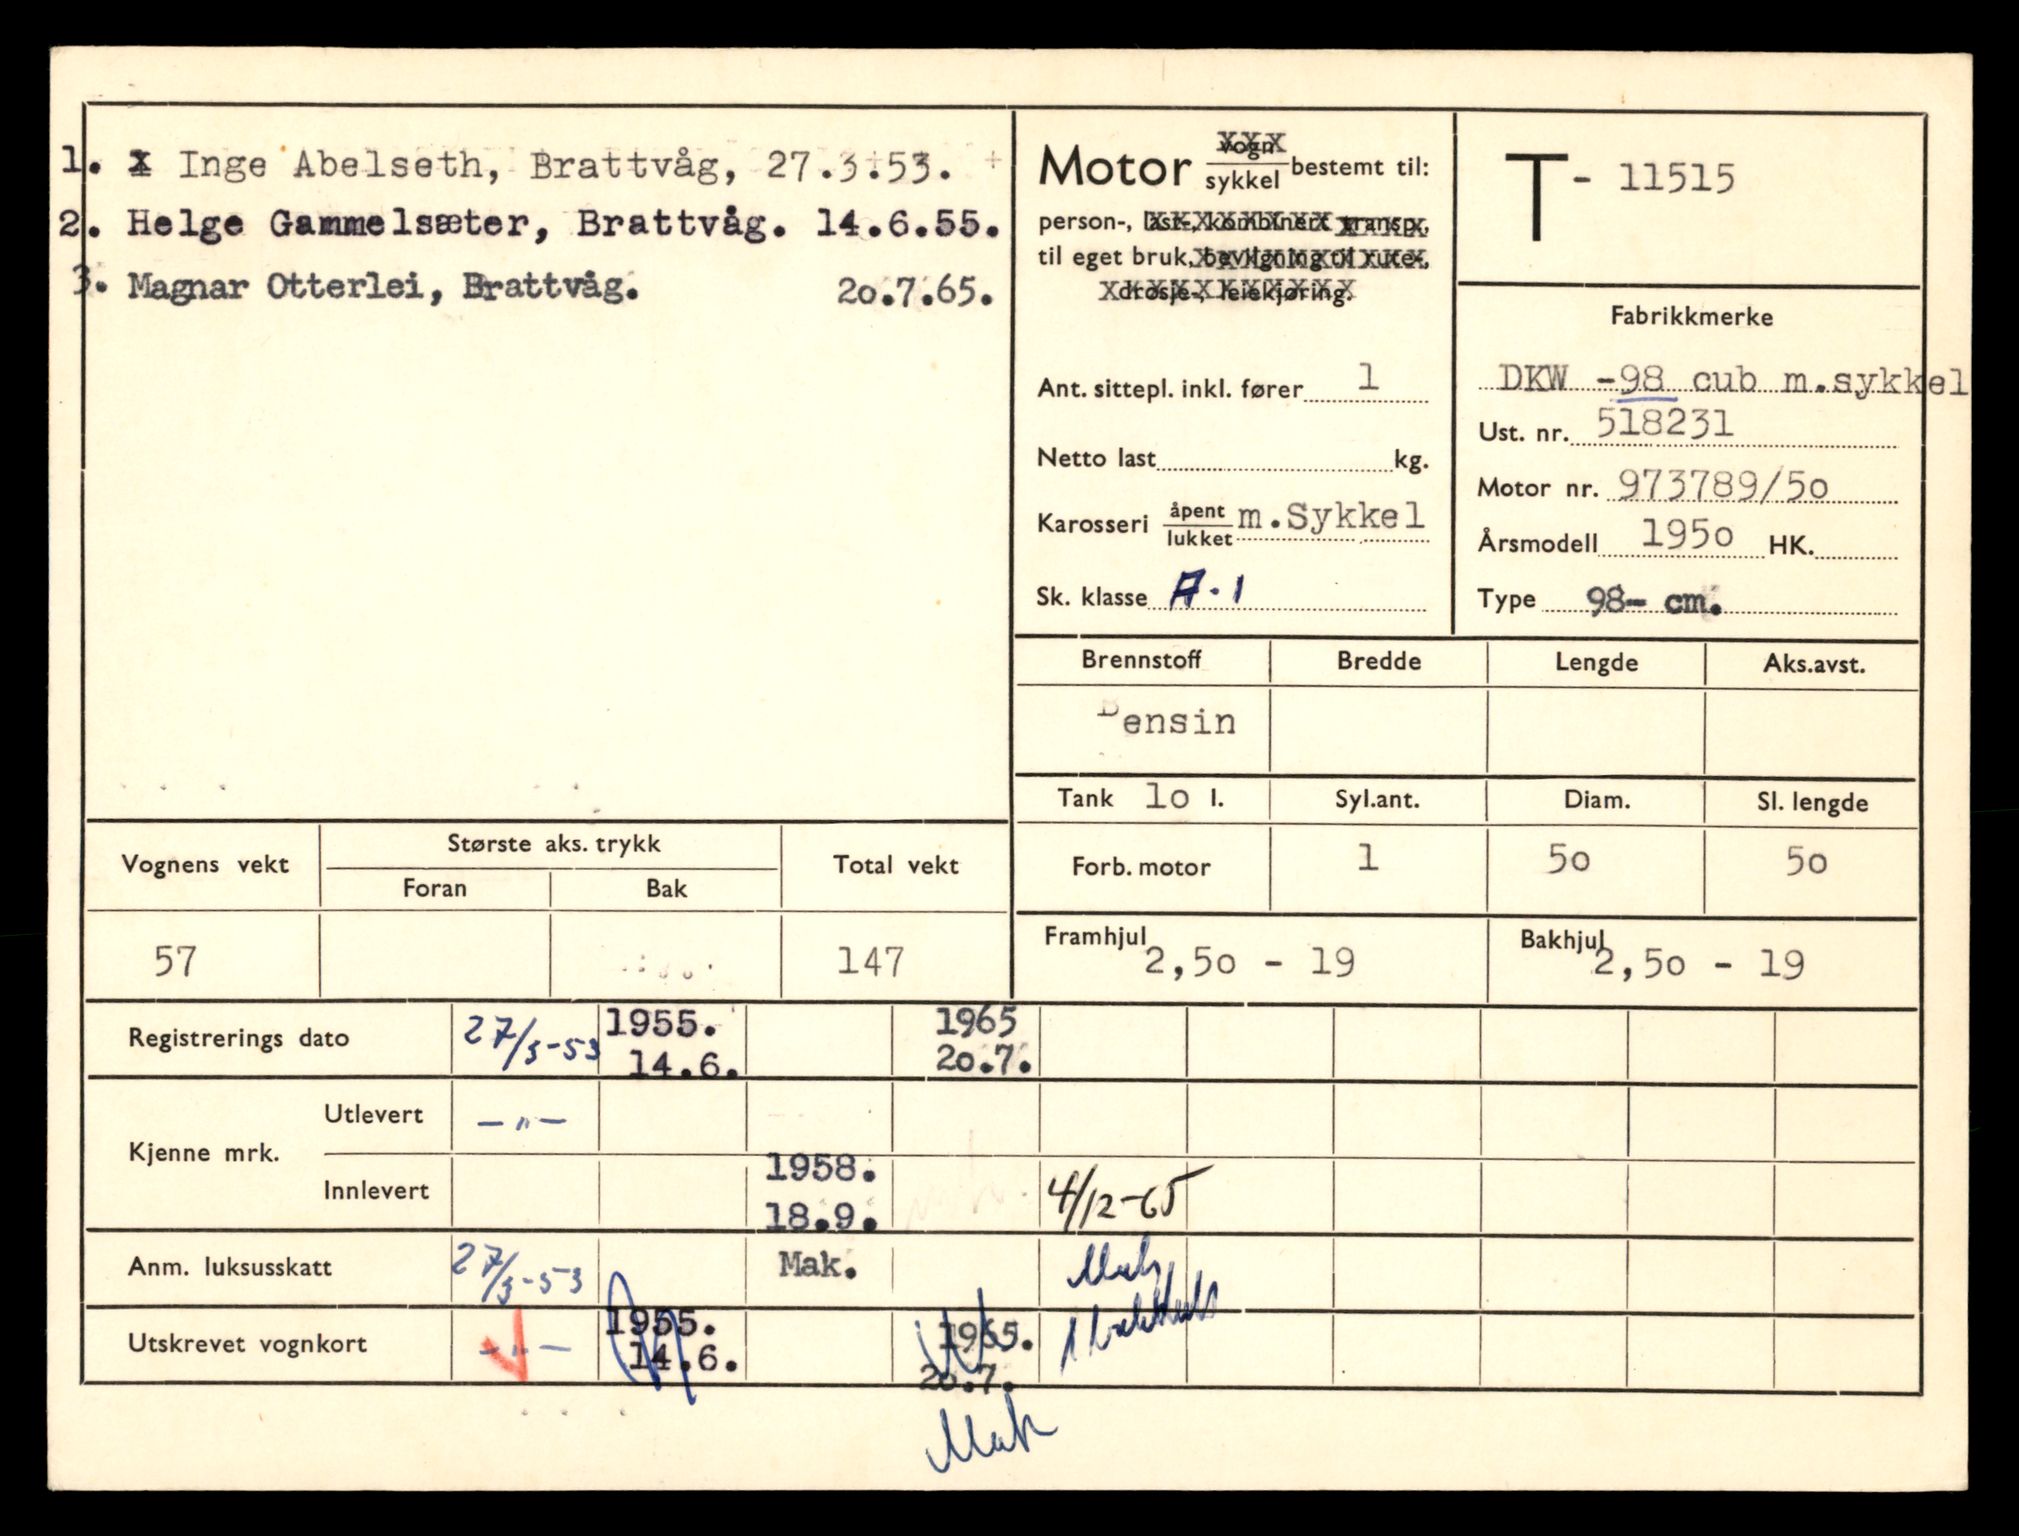 1. x Inge Abelseth, Brattvåg, 27.3.53.
2. Helge Gammelsæter, Brattvåg. 14.6.55.
3. Magnar Otterlei, Brattvåg. 20.7.65.
Motor vogn/sykkel bestemt til:
person-, last-, kombinert transp.,
til eget bruk, bevilgning til rute-,
drosje-, leiekjøring.
Ant. sittepl. inkl. fører 1
Netto last kg.
Karosseri åpent/lukket m.Sykkel
Sk. klasse A.1
T - 11515
Fabrikkmerke
DKW -98 cub m.sykkel
Ust. nr. 518231
Motor nr. 973789/50
Årsmodell 1950 HK.
Type 98- cm.
Brennstoff Bredde Lengde Aks.avst.
Bensin
Tank 10 l. Syl.ant. Diam. Sl. lengde
Forb. motor 1 50 50
Framhjul 2,50 - 19 Bakhjul 2,50 - 19
Vognens vekt Største aks. trykk Total vekt
Foran Bak
57 147
Registrerings dato 27/3-53 1955. 14.6. 1965 20.7.
Kjenne mrk. Utlevert -"-
Innlevert 1958. 18.9. 4/12-65
Anm. luksusskatt 27/3-53 Mak. Mak
Utskrevet vognkort -"- 1955. 14.6. 1965. 20.7.
Mak